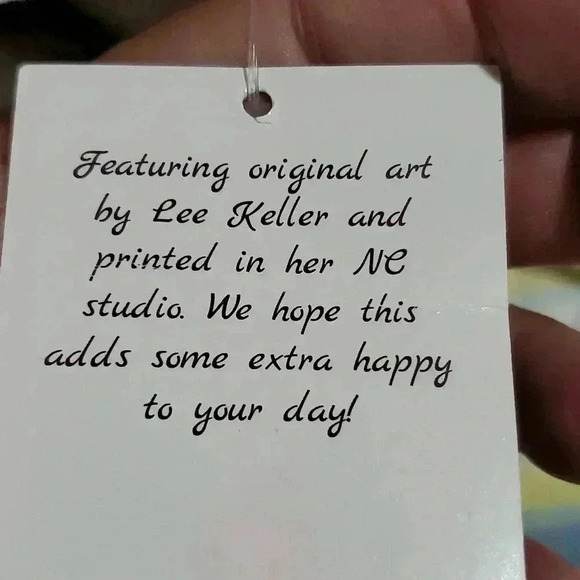 Featuring original art
by Lee Keller and
printed in her NC
studio. We hope this
adds some extra happy
to your day!